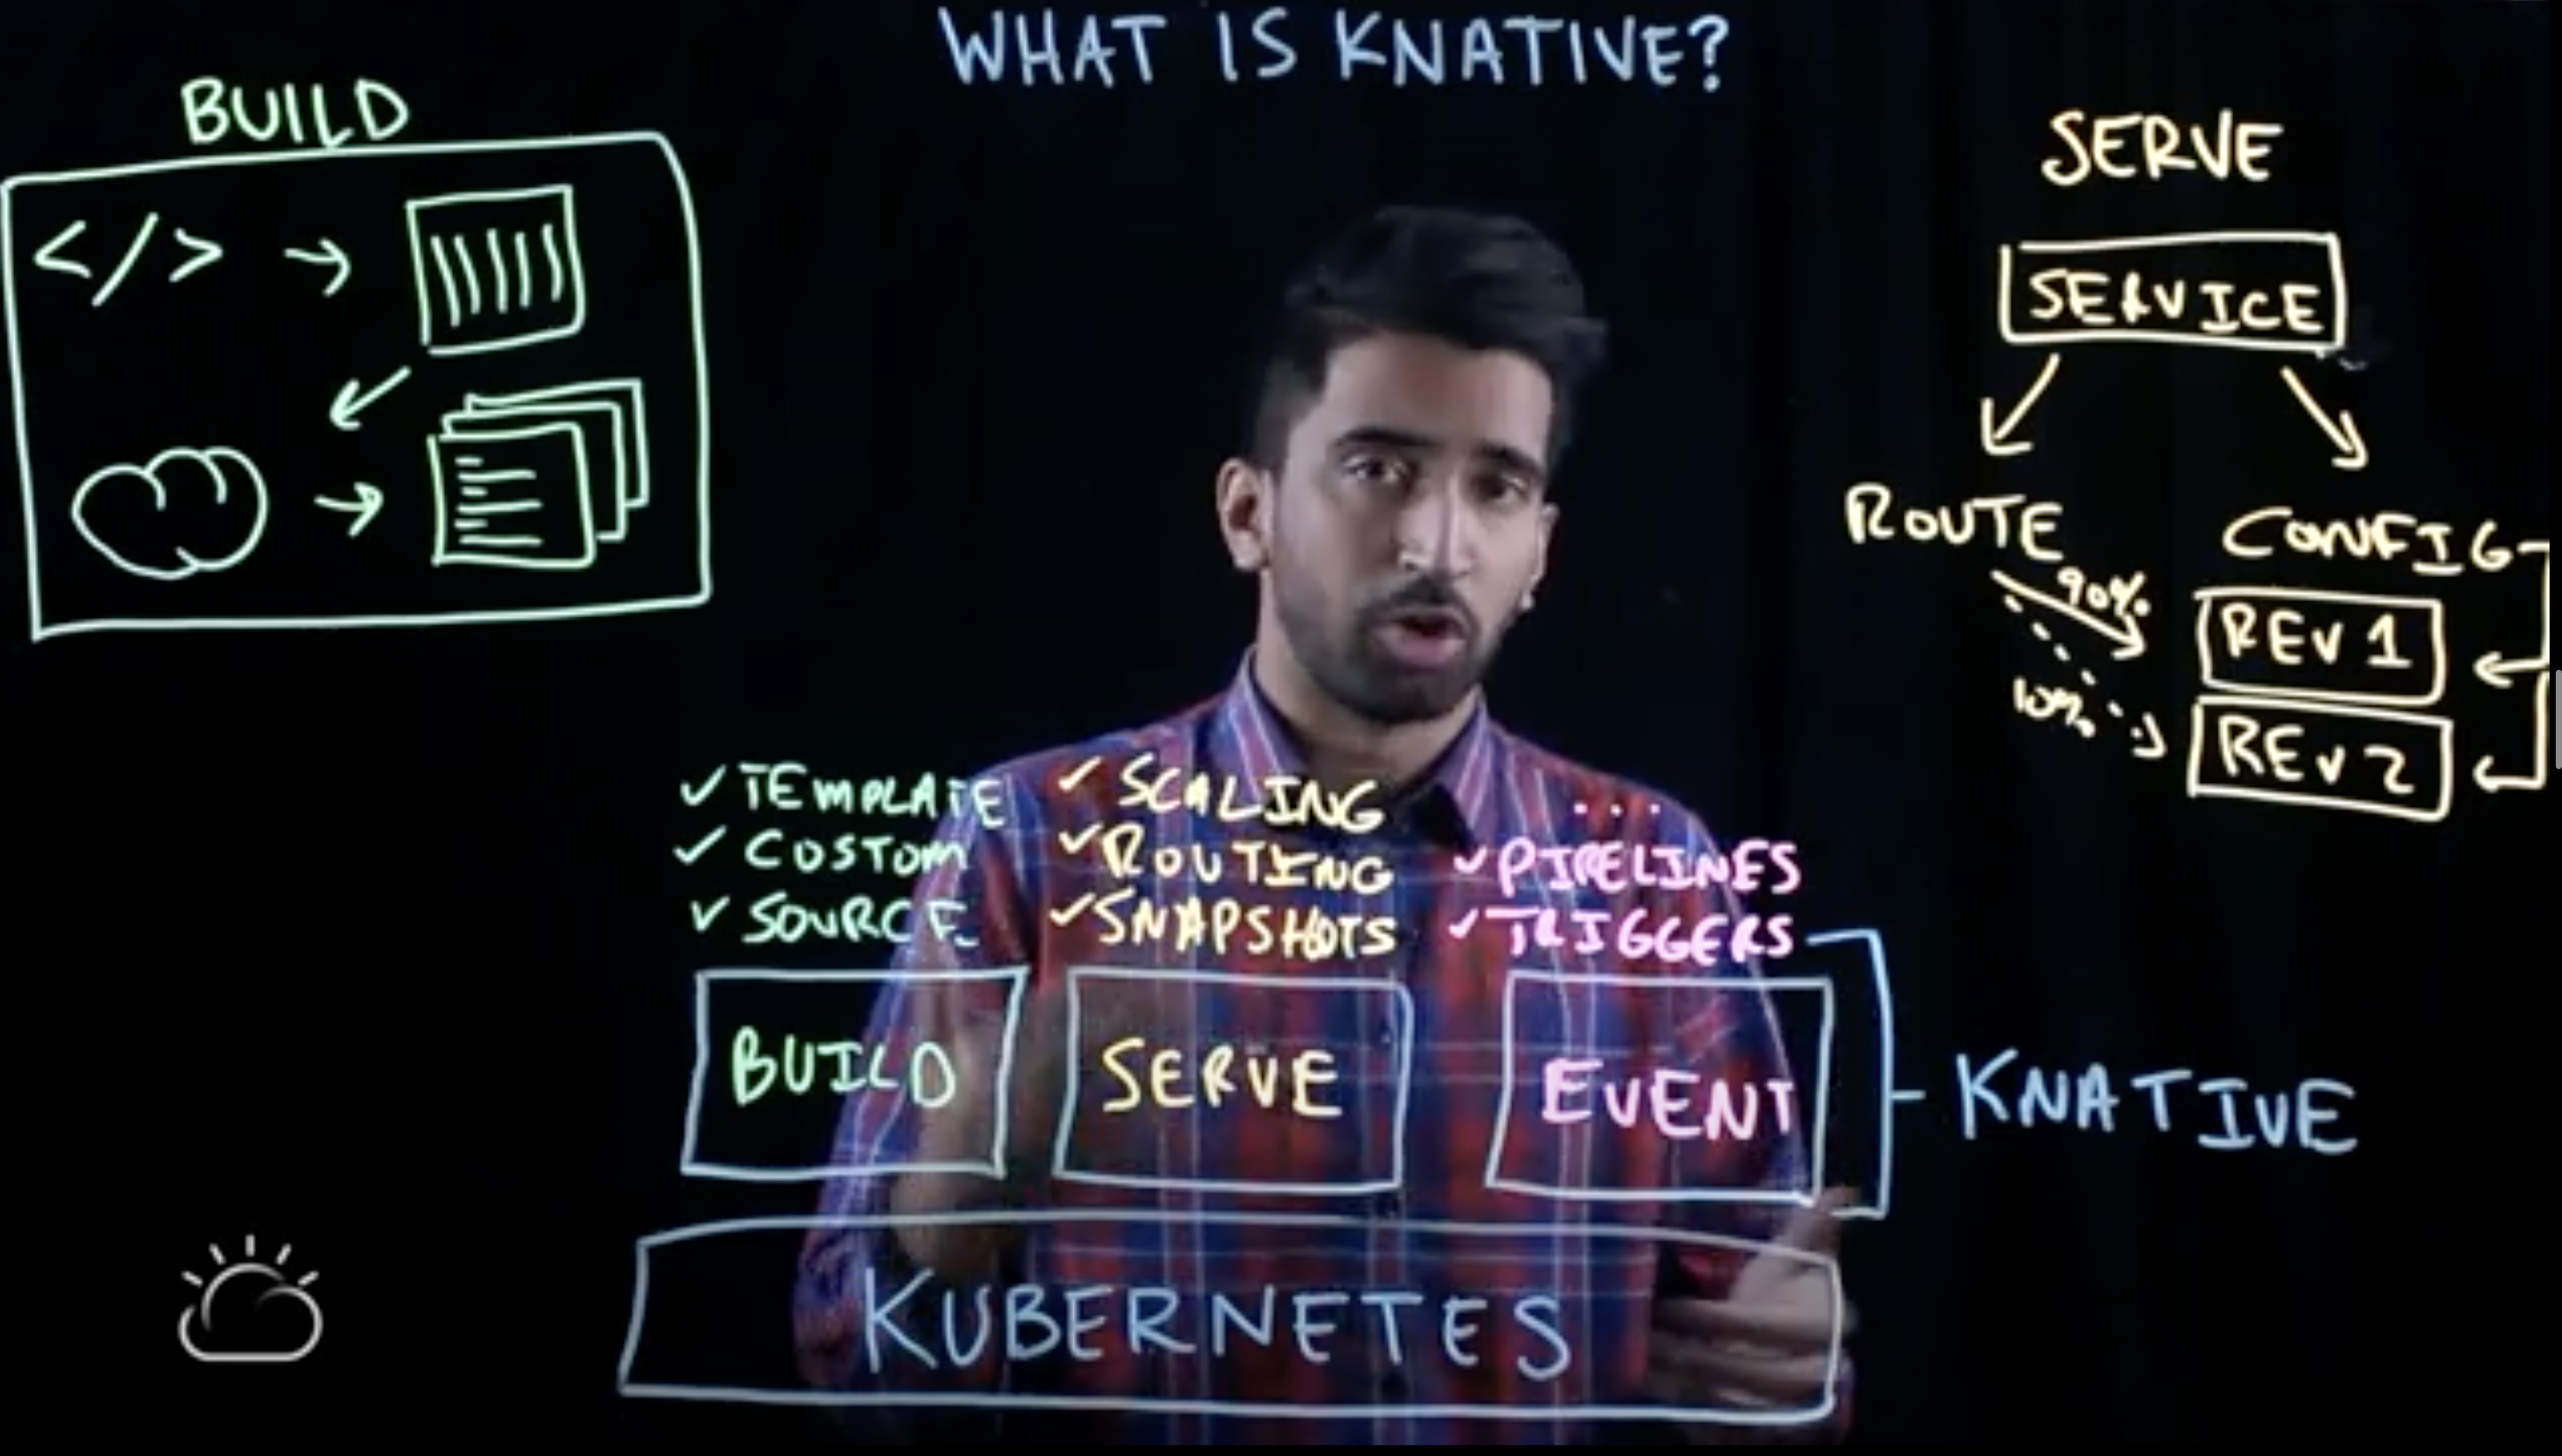 WHAT IS KNATIVE?
BUILD
</>
SERVE
SERVICE
ROUTE
CONFIG
90%
REV 1
10%
REV 2
✓ TEMPLATE
✓ CUSTOM
✓ SOURCE
✓ SCALING
✓ ROUTING
✓ SNAPSHOTS
...
✓ PIPELINES
✓ TRIGGERS
BUILD
SERVE
EVENT
KNATIVE
KUBERNETES